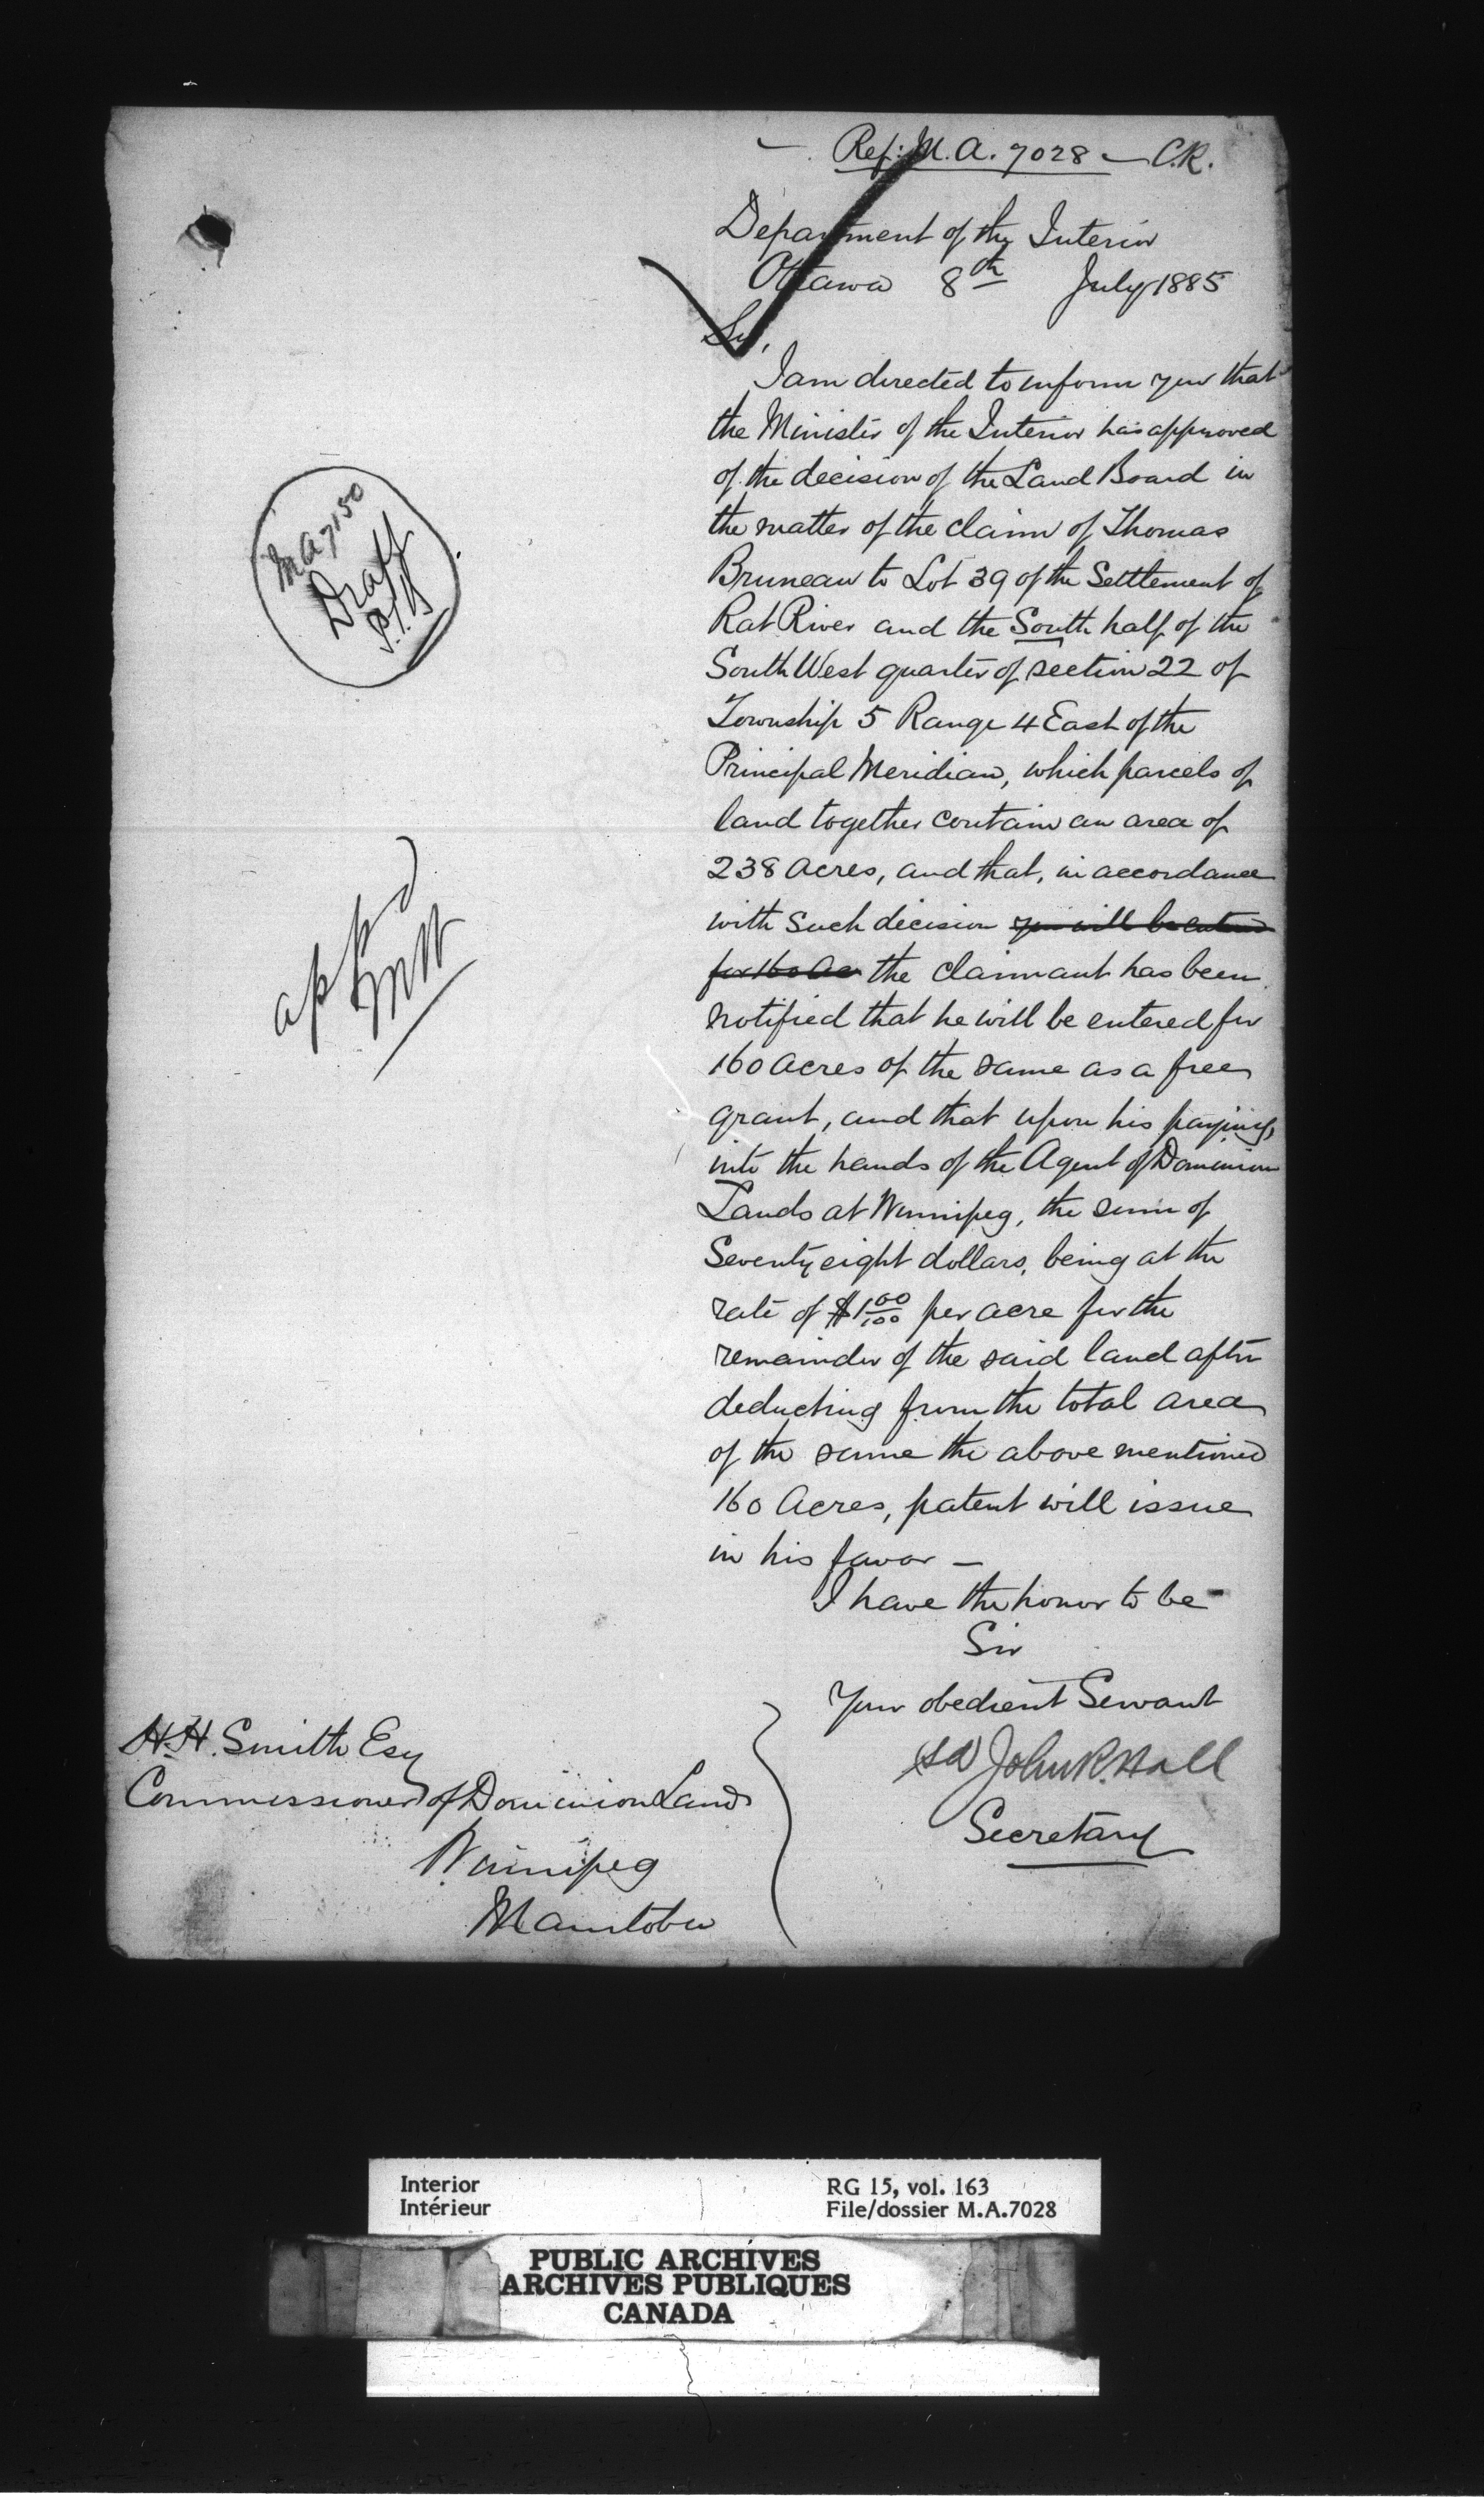 Ref: M.A. 7028 — C.R.
Department of the Interior
Ottawa 8th July 1885
Sir,
I am directed to inform you that
the Minister of the Interior has approved
of the decision of the Land Board in
the matter of the claim of Thomas
Bruneau to Lot 39 of the Settlement of
Rat River and the South half of the
South West quarter of section 22 of
Township 5 Range 4 East of the
Principal Meridian, which parcels of
land together contain an area of
238 acres, and that, in accordance
with such decision you will be entered
for 160 ac the claimant has been
notified that he will be entered for
160 acres of the same as a free
grant, and that upon his paying
into the hands of the Agent of Dominion
Lands at Winnipeg, the sum of
Seventy eight dollars, being at the
rate of $1 00/100 per acre for the
remainder of the said land after
deducting from the total area
of the same the above mentioned
160 Acres, patent will issue
in his favor —
I have the honor to be
Sir
Your obedient Servant
(sd) John R. Hall
Secretary
MA 7150
Draft
app'd
H.H. Smith Esq
Commissioner of Dominion Lands
Winnipeg
Manitoba
Interior
Intérieur
RG 15, vol. 163
File/dossier M.A.7028
PUBLIC ARCHIVES
ARCHIVES PUBLIQUES
CANADA